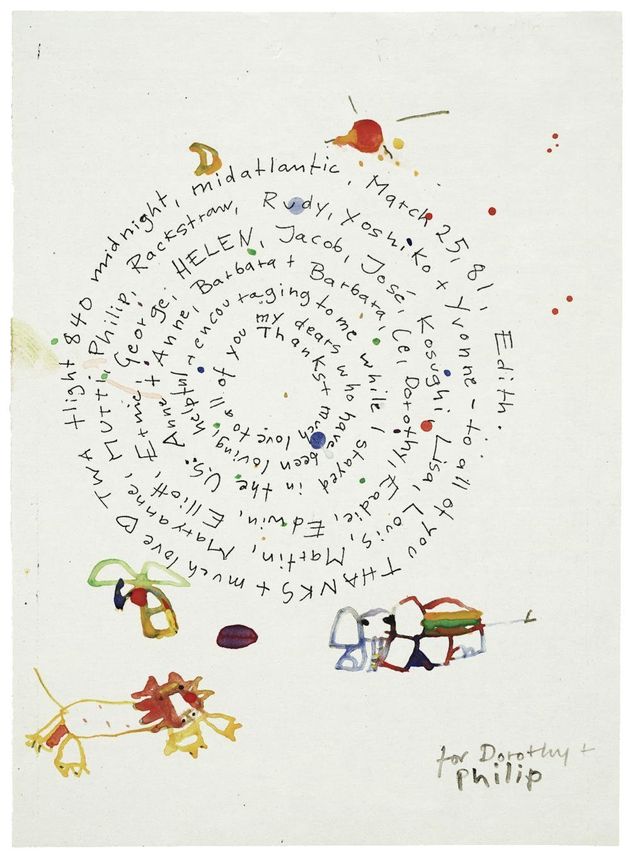 Thanks + much love to all of you my dears who have been loving, helpful + encouraging to me while I stayed in the U.S. Anne + Anne, Barbara + Barbara, Cei, Dorothy, Eadie, Edwin, Elliott, Ernie, George, HELEN, Jacob, José, Kosughi, Lisa, Louis, Martin, Maryanne, MUTTI, Philip, Rackstraw, Rudy, Yoshiko + Yvonne – to all of you THANKS + much love ♡ TWA flight 840 midnight, midatlantic, March 25, 81, Edith.
for Dorothy +
Philip